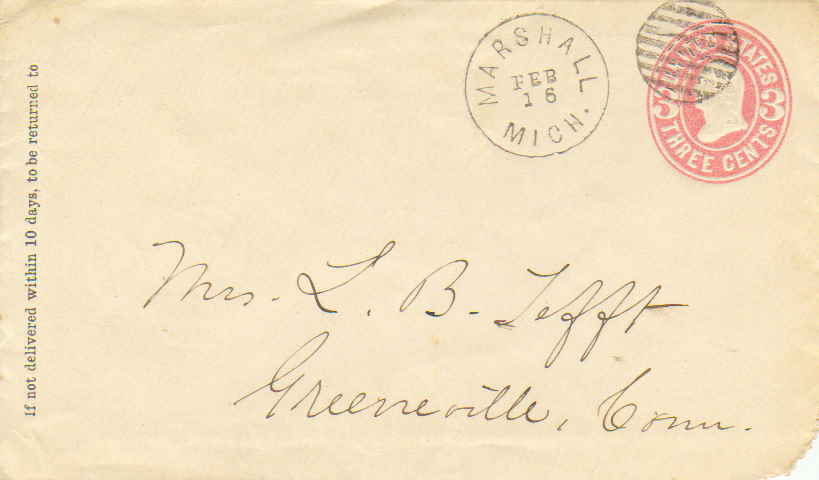 MARSHALL
FEB
16
MICH.
UNITED STATES
3 3
THREE CENTS
If not delivered within 10 days, to be returned to
Mrs. L. B. Tefft
Greeneville, Conn.